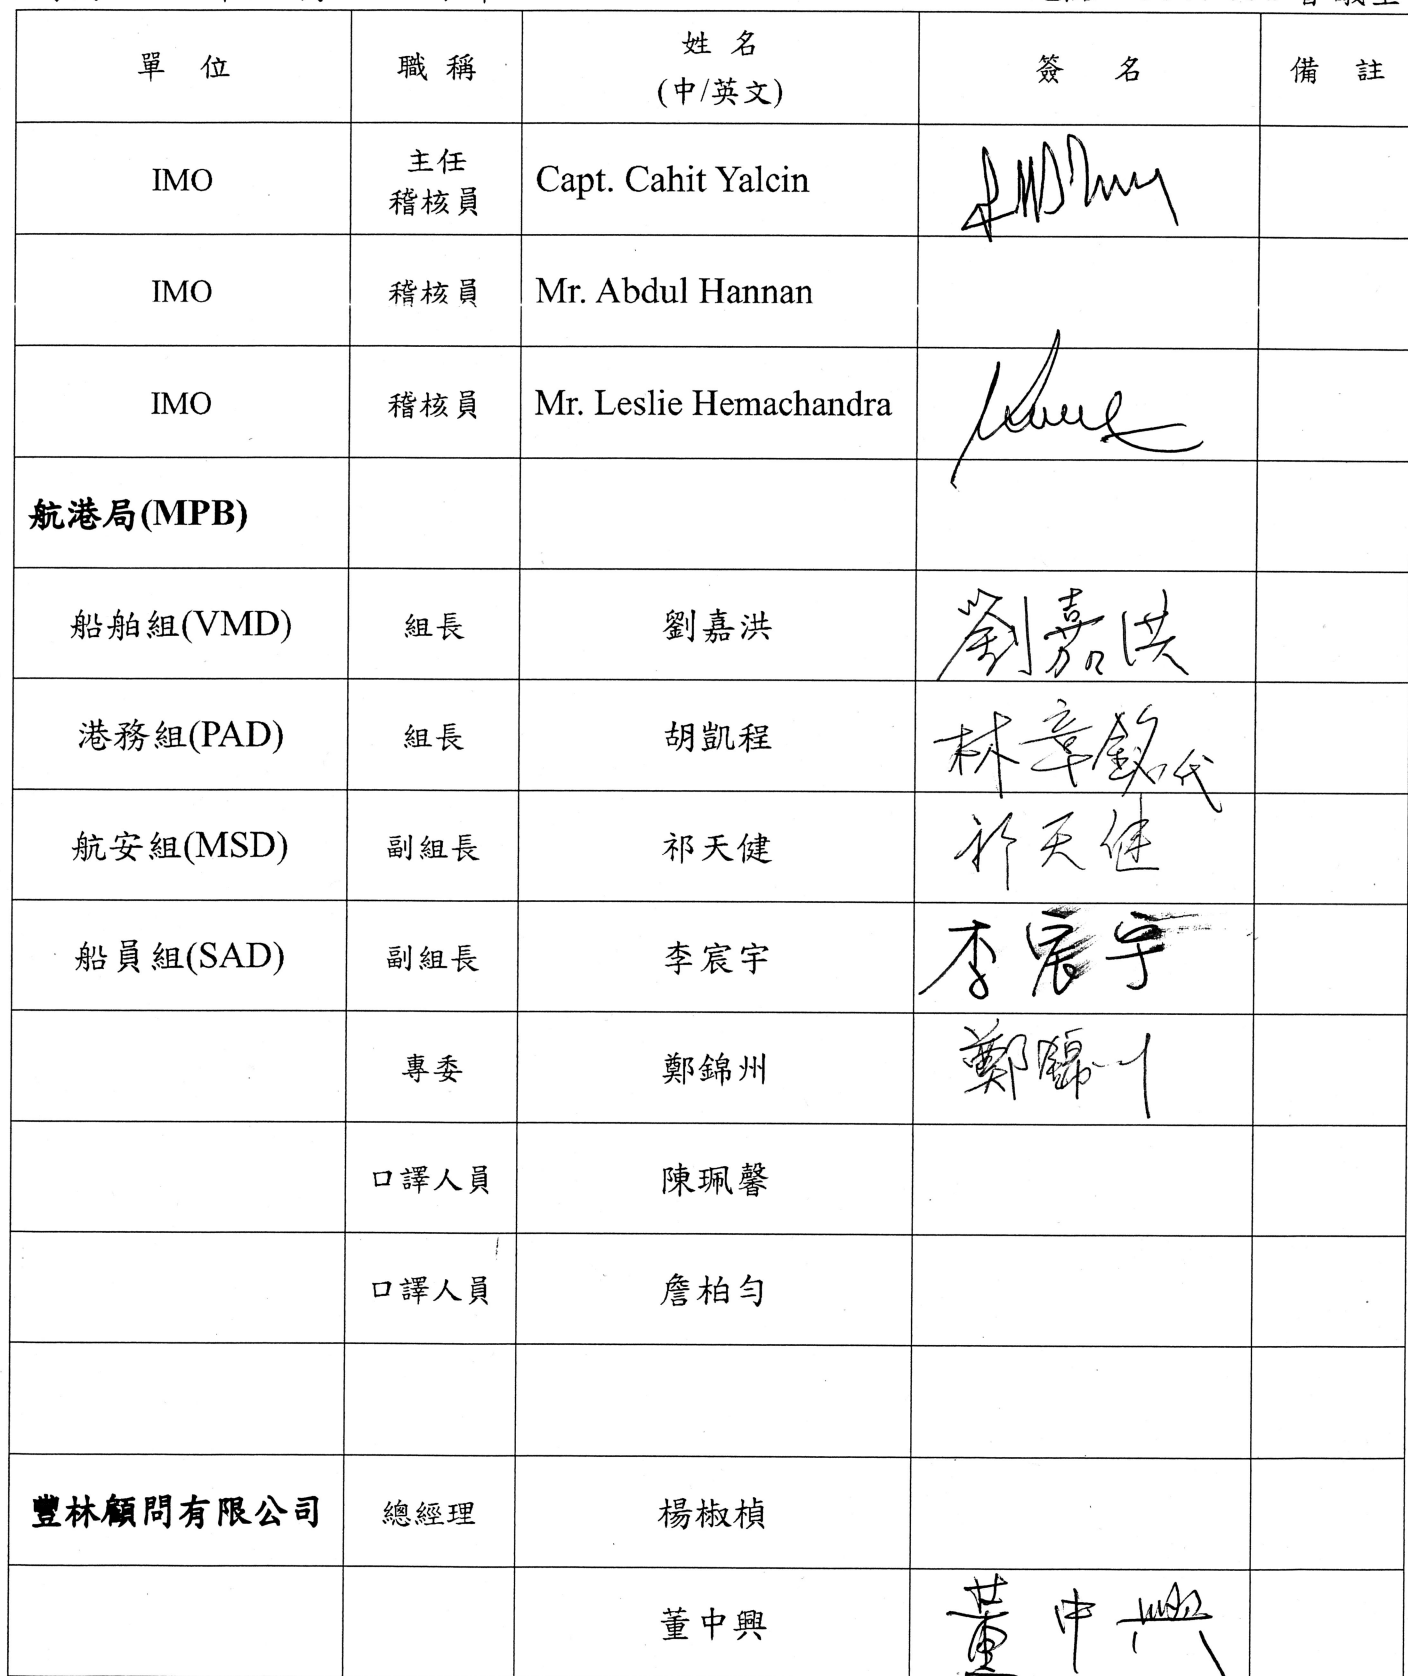 單 位 職 稱 姓 名 簽 名 備 註
(中/英文)
IMO 主任 稽核員 Capt. Cahit Yalcin
IMO 稽核員 Mr. Abdul Hannan
IMO 稽核員 Mr. Leslie Hemachandra
航港局(MPB)
船舶組(VMD) 組長 劉嘉洪 劉嘉洪
港務組(PAD) 組長 胡凱程 林章銘代
航安組(MSD) 副組長 祁天健 祁天健
船員組(SAD) 副組長 李宸宇 李宸宇
專委 鄭錦州 鄭錦州
口譯人員 陳珮馨
口譯人員 詹柏勻
豐林顧問有限公司 總經理 楊椒楨
董中興 董中興